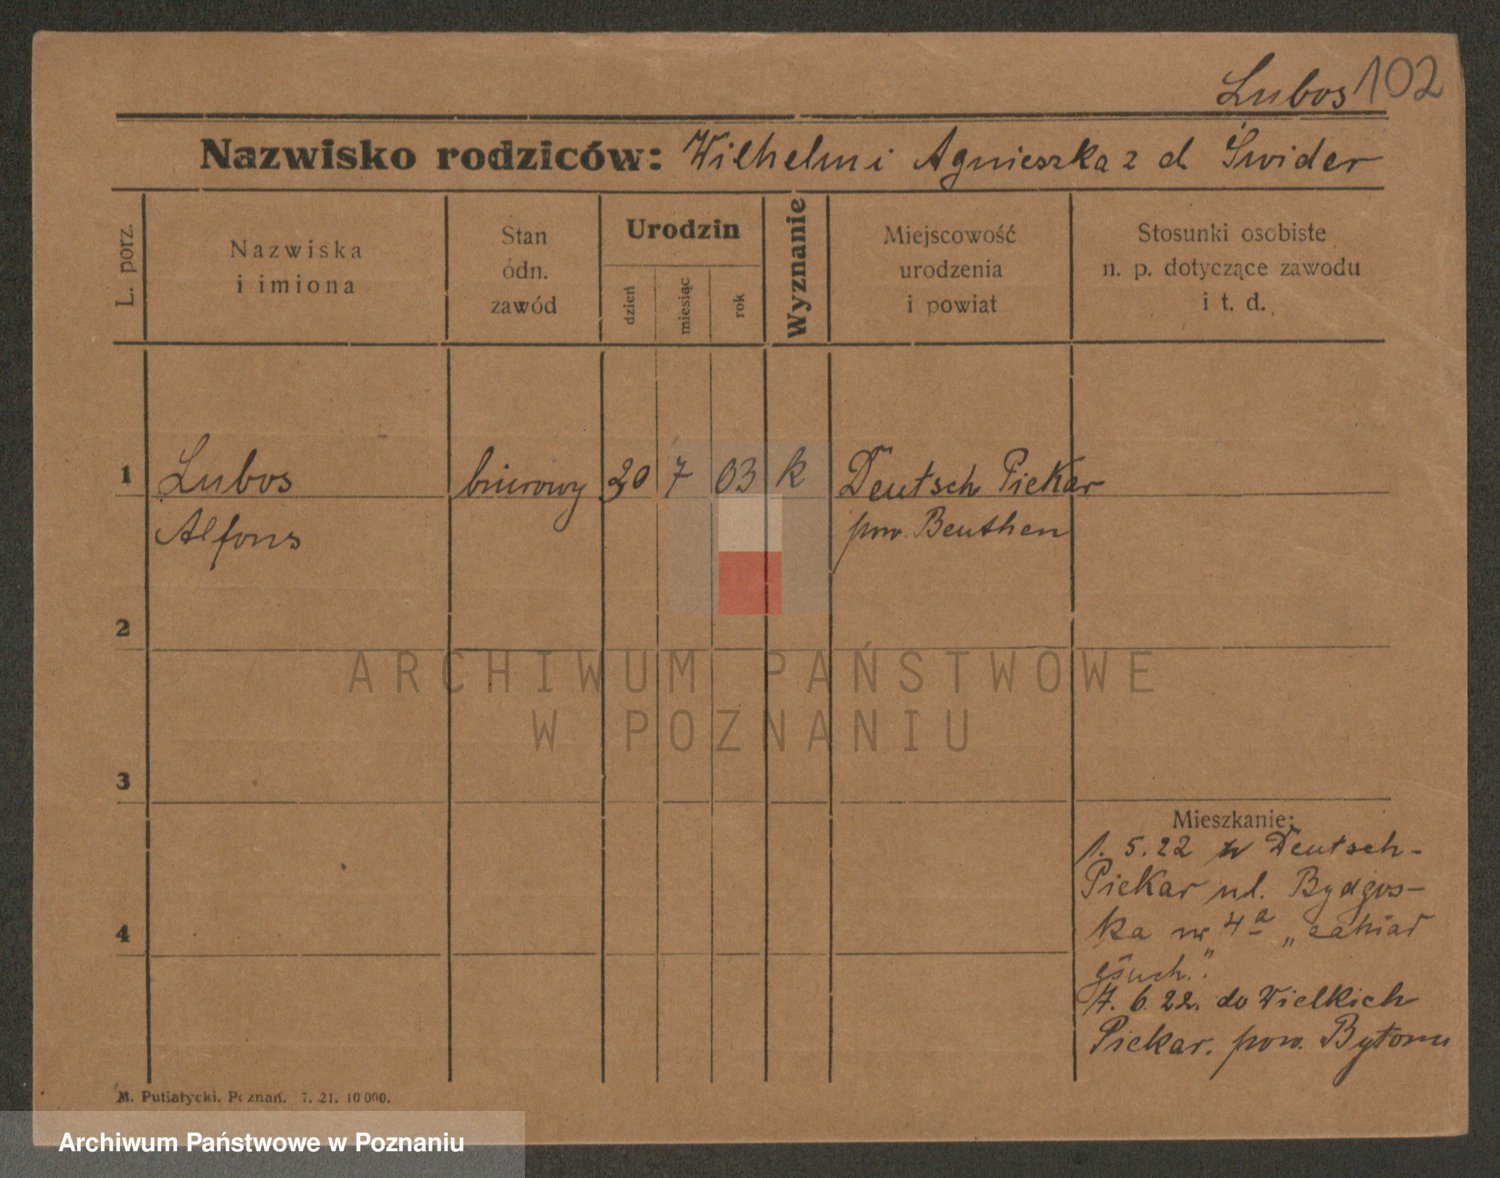 Lubos 102
Nazwisko rodziców: Wilhelm i Agnieszka z d Świder
L. porz.
Nazwiska
i imiona
Stan
odn.
zawód
Urodzin
dzień
miesiąc
rok
Wyznanie
Miejscowość
urodzenia
i powiat
Stosunki osobiste
n. p. dotyczące zawodu
i t. d.
1
Lubos
biurowy
30
7
03
k
Deutsch Piekar
Alfons
pow. Beuthen
2
3
4
Mieszkanie:
1. 5. 22 w Deutsch-
Piekar ul. Bydgos-
ka nr 4a
7. 6 22. do Wielkich
Piekar. pow. Bytom
M. Putiatycki, Poznań. 7. 21. 10 000.
ARCHIWUM PAŃSTWOWE
W POZNANIU
Archiwum Państwowe w Poznaniu